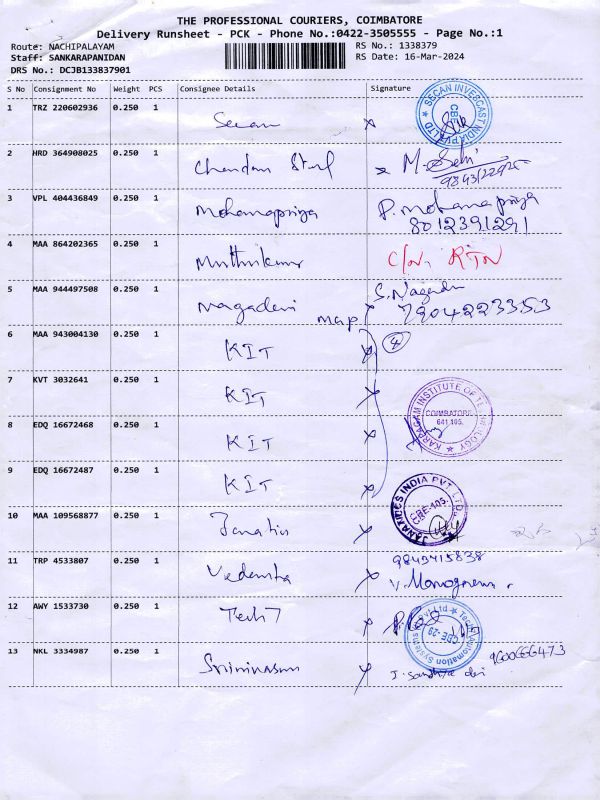 THE PROFESSIONAL COURIERS, COIMBATORE
Delivery Runsheet - PCK - Phone No.:0422-3505555 - Page No.:1
Route: NACHIPALAYAM RS No.: 1338379
Staff: SANKARAPANIDAN RS Date: 16-Mar-2024
DRS No.: DCJB133837901
S No Consignment No Weight PCS Consignee Details Signature
1 TRZ 220602936 0.250 1 Secan
SECAN INVESCAST INDIA PVT LTD CBE
2 HRD 364908025 0.250 1 Chandan Steel
3 VPL 404436849 0.250 1 Mohanapriya P. Mohanapriya
8012391291
4 MAA 864202365 0.250 1 Muthukumar RTN
5 MAA 944497508 0.250 1 Nagadevi S. Nagadevi
7904223353
6 MAA 943004130 0.250 1 KIT 4
7 KVT 3032641 0.250 1 KIT
8 EDQ 16672468 0.250 1 KIT
KARPAGAM INSTITUTE OF TECHNOLOGY
COIMBATORE
641 105.
9 EDQ 16672487 0.250 1 KIT
10 MAA 109568877 0.250 1 Janatics
INDIA PVT. LTD. CBE-105.
11 TRP 4533807 0.250 1 Vedanta 9843415838
12 AWY 1533730 0.250 1 Tech 7
Automation Systems
13 NKL 3334987 0.250 1 Srinivasan J. Sandhya devi